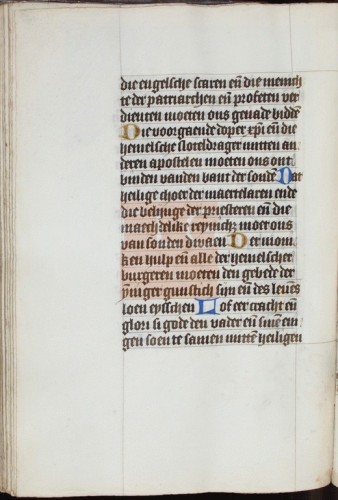 die engelsche scaren eñ die menich
te der patriarchen eñ profeten ver
dienten moeten ons genade biddē
Die voorgaende doper xpi eñ die
hemelsche sloteldrager mitten an
deren apostelen moeten ons ont
binden vanden bant der sondē Dat
heilige choer der maertelaren ende
die belyinge der priesteren eñ die
maechdelike reynich; moet ons
van sonden dwaen Der mon
ken hulp eñ alle der hemelscher
burgeren moeten den gebede der
gunstich sijn eñ des leuēs
loen eysschen Lof eer cracht eñ
glori si gode den vader eñ sinē een
gen soen te samen mittē heiligen